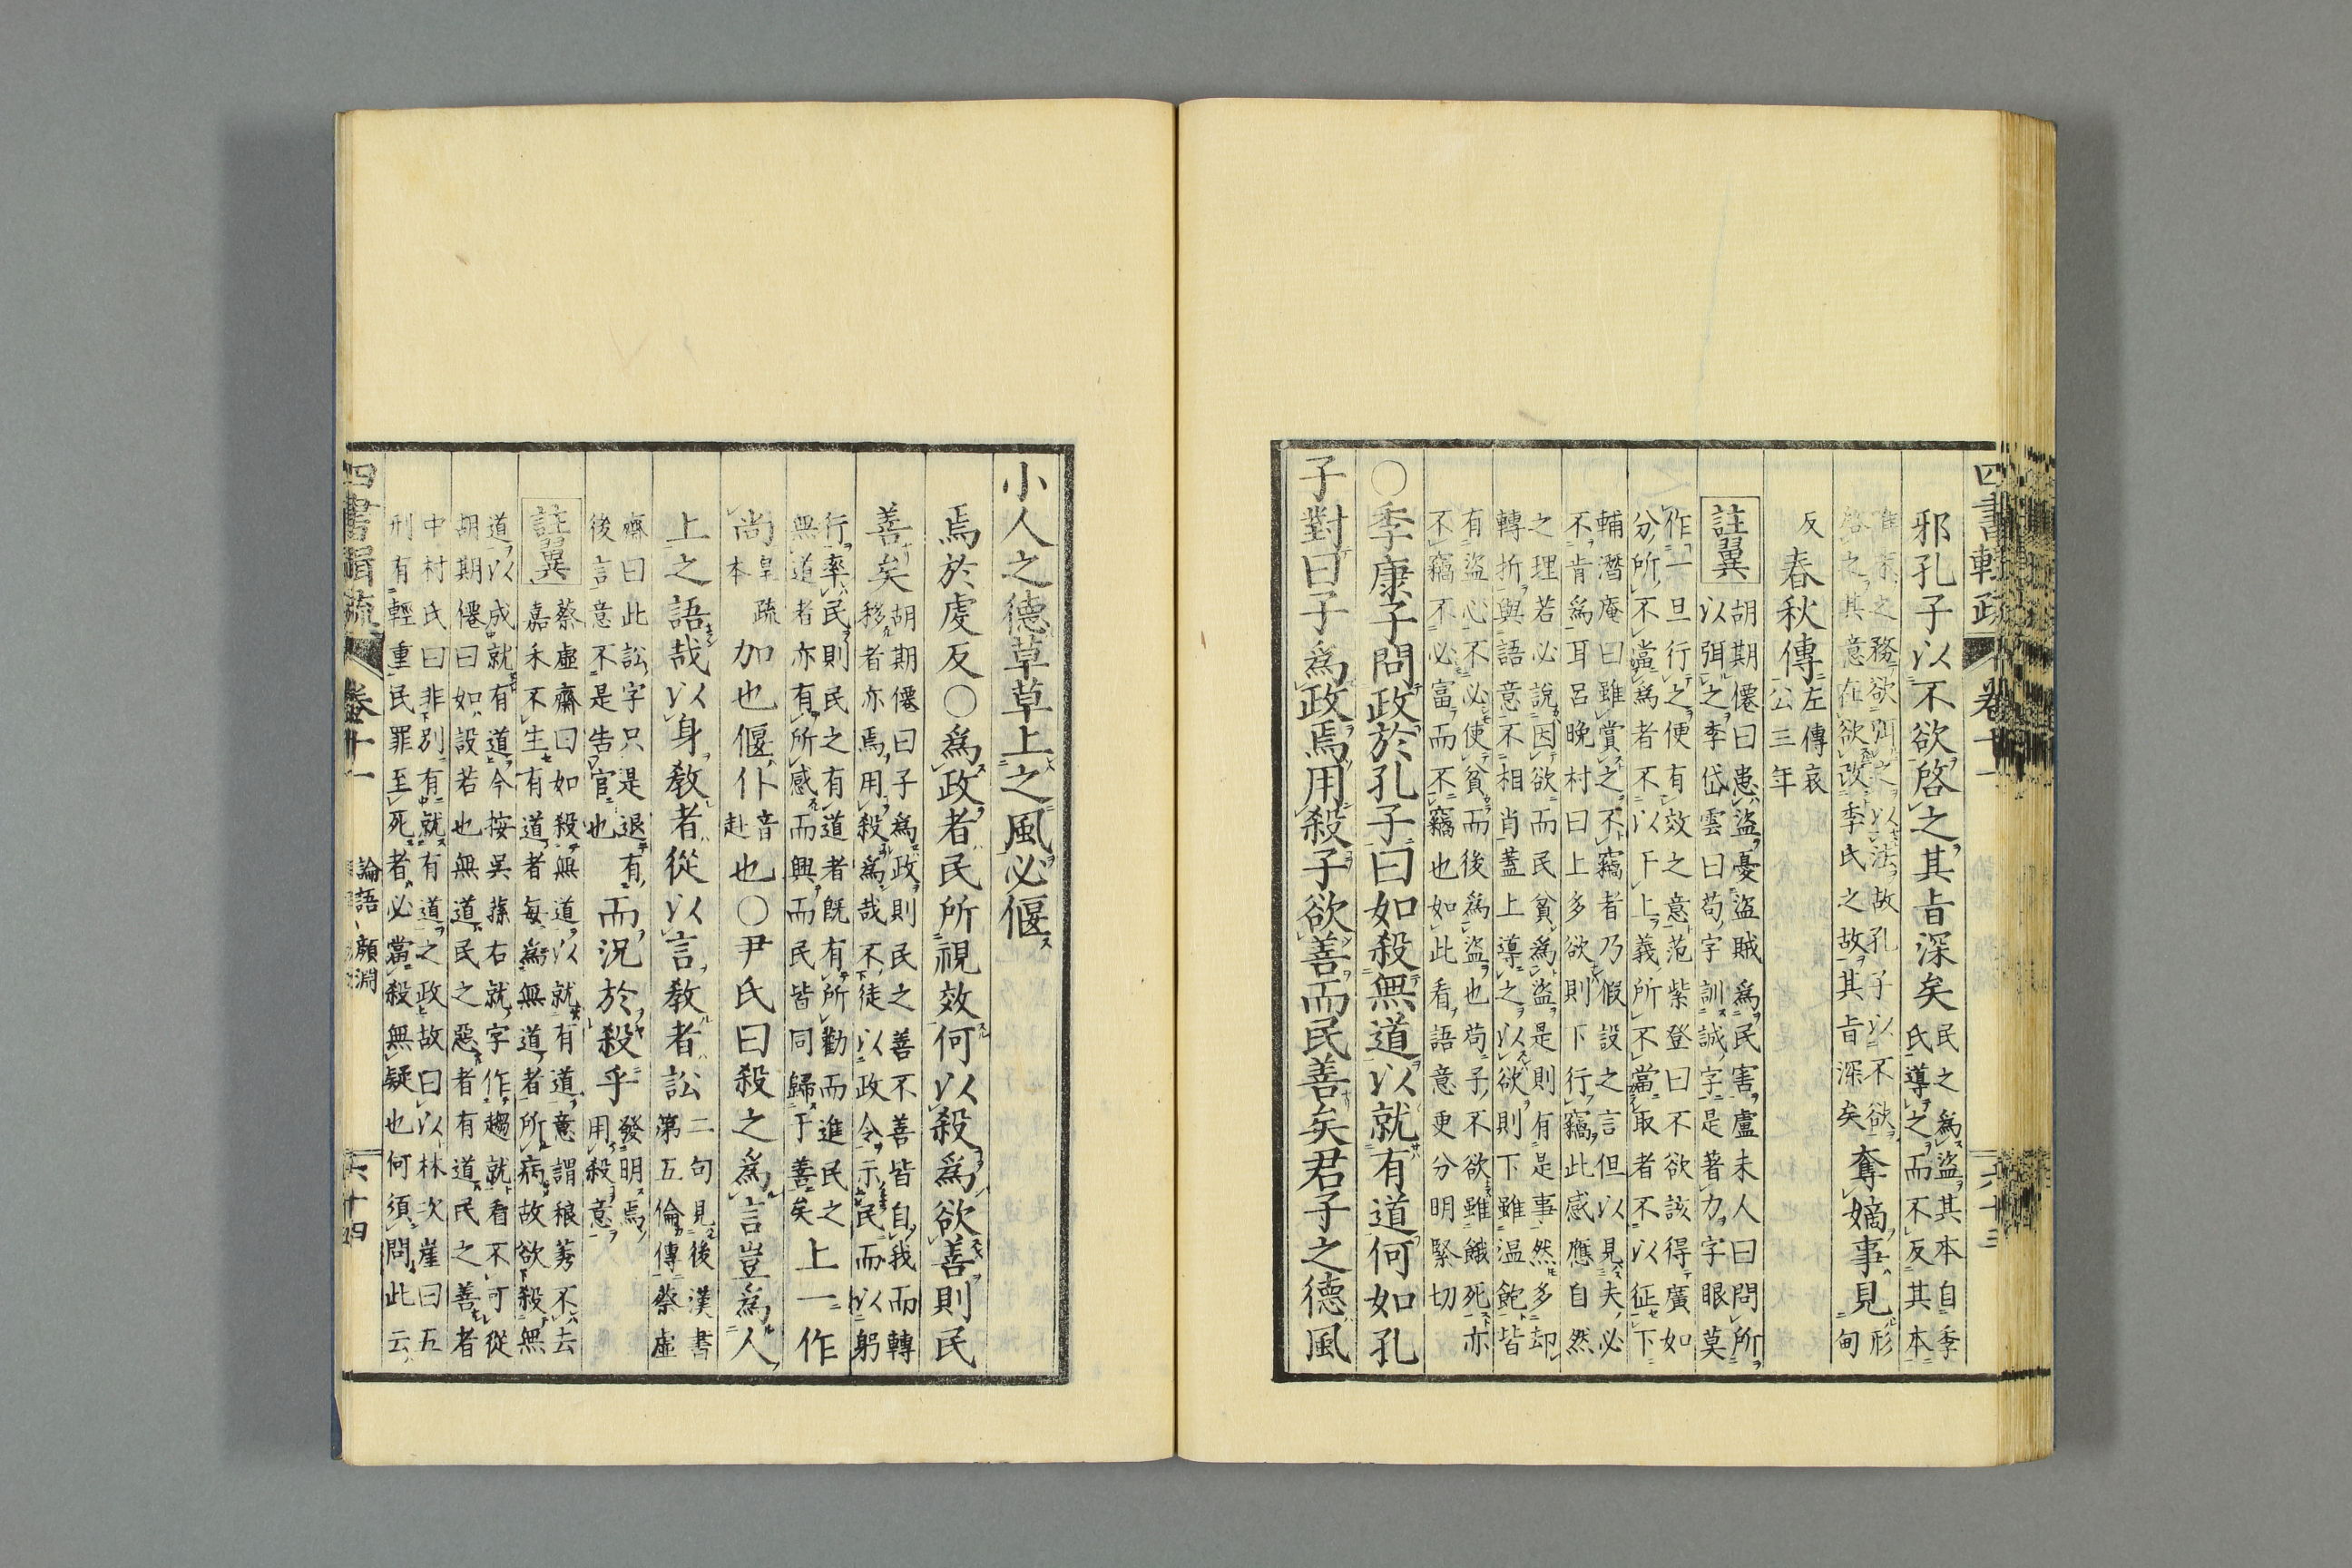 四書輯疏 卷十一 六十三
邪孔子以不欲啓之其旨深矣
民之爲盜其本自季
氏導之而不反其本
之務欲以法故孔子以不欲
啓之其意在欲改季氏之故其旨深矣
奪嫡事見
形
甸
反
春秋傳
左傳哀
公三年
註翼
胡期僊曰患盜憂盜賊爲民害盧未人曰問所
以弭之季岱雲曰苟字訓誠字是著力字眼莫
作一旦行之便有效之意范紫登曰不欲該得廣如
分所不當爲者不以干上義所不當取者不以征下
輔潛庵曰雖賞之不竊者乃假設之言但以見夫必
不肯爲耳呂晚村曰上多欲則下行竊此感應自然
之理若必說因欲而民貧爲盜是則有是事然多却
轉折與語意不相肖蓋上導之以欲則下雖溫飽皆
有盜心不必使貧而後爲盜也苟子不欲雖餓死亦
不竊不必富而不竊也如此看語意更分明緊切
○季康子問政於孔子曰如殺無道以就有道何如孔
子對曰子爲政焉用殺子欲善而民善矣君子之德風
小人之德草草上之風必偃
焉於虔反○爲政者民所視效何以殺爲欲善則民
善矣
胡期僊曰子爲政則民之善不善皆自我而轉
移者亦焉用殺爲哉不徒以政令示民而以躬
行率民則民之有道者既有所勸而進民之
無道者亦有所感而興而民皆同歸于善矣
上一作
尚
皇疏
本
加也偃仆
音
赴
也○尹氏曰殺之爲言豈爲人
上之語哉以身教者從以言教者訟
二句見後漢書
第五倫傳蔡虛
齋曰此訟字只是退有
後言意不是告官也
而況於殺乎
發明焉
用殺意
註翼
蔡虛齋曰如殺無道以就有道意謂稂莠不去
嘉禾不生有道者每爲無道者所病故欲殺無
道以成就有道今按吳蓀右就字作趨就看不可從
胡期僊曰如設若也無道民之惡者有道民之善者
中村氏曰非別有就有道之政故曰以林次崖曰五
刑有輕重民罪至死者必當殺無疑也何須問此云
四書輯疏 卷十一 論語 顏淵 六十四